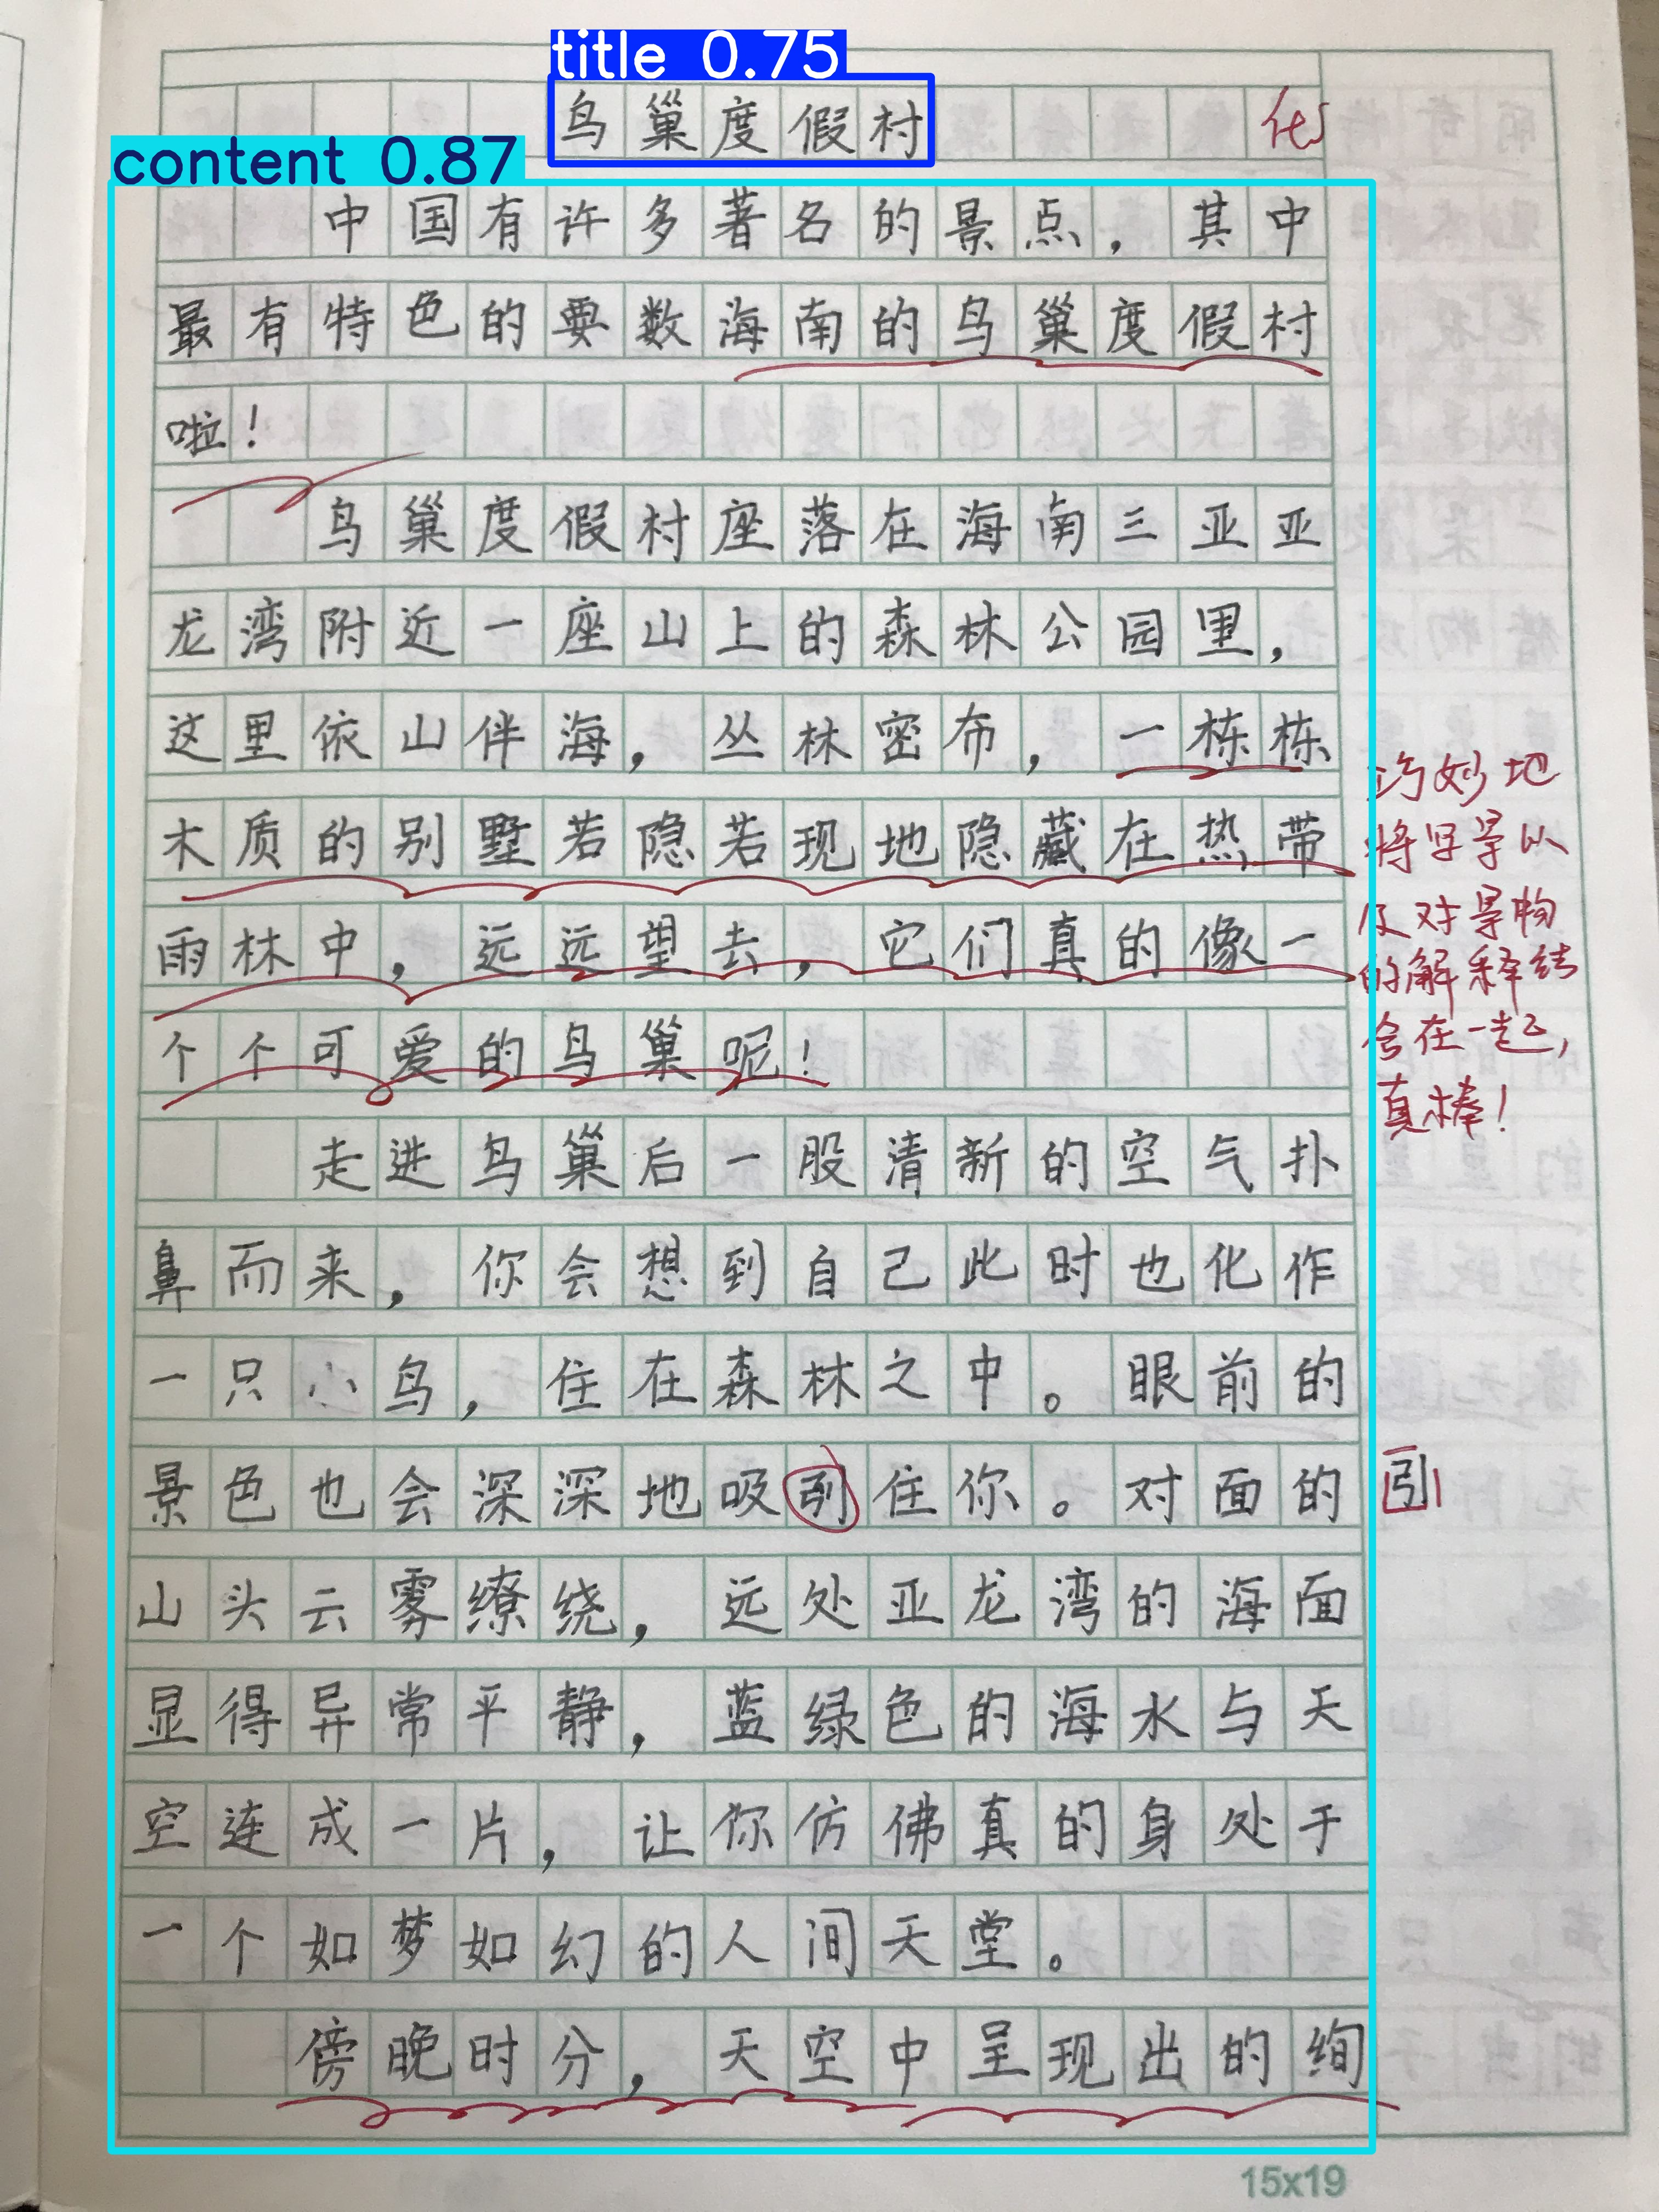 title 0.75
鸟巢度假村
content 0.87
中国有许多著名的景点，其中
最有特色的要数海南的鸟巢度假村
啦！
鸟巢度假村座落在海南三亚亚
龙湾附近一座山上的森林公园里，
这里依山伴海，丛林密布，一栋栋
木质的别墅若隐若现地隐藏在热带
雨林中，远远望去，它们真的像一
个个可爱的鸟巢呢！
走进鸟巢后一股清新的空气扑
鼻而来，你会想到自己此时也化作
一只小鸟，住在森林之中。眼前的
景色也会深深地吸引住你。对面的
山头云雾缭绕，远处亚龙湾的海面
显得异常平静，蓝绿色的海水与天
空连成一片，让你仿佛真的身处于
一个如梦如幻的人间天堂。
傍晚时分，天空中呈现出的绚
巧妙地
将写景以
及对景物
的解释结
合在一起，
真棒！
引
15x19